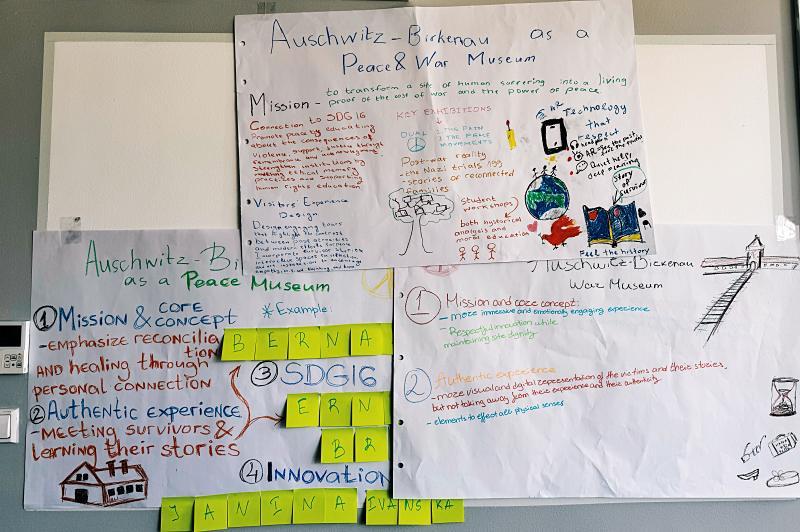 Auschwitz-Birkenau as a
Peace & War Museum
Mission - to transform a site of human suffering into a living
proof of the cost of war and the power of peace.
Connection to SDG16
Promote peace by educating
about the consequences of
violence, support justice through
remembrance and acknowledging,
strengthen institutions by
ethical memory
practices and supporting
human rights education
Visitors' Experience
Design
KEY EXHIBITIONS
DUAL : THE PATH
: THE PEACE
MOVEMENTS
Post-war reality
- the Nazi trials
- stories of reconnected
families
student
workshops
both hystorical
analysis and
moral education
Technology
that
respect
AR
Quiet help
Story of
survivor
Feel the history
Auschwitz-Bi
as a Peace Museum
1 Mission & core
concept
- emphasize reconcilia
tion
AND healing through
personal connection
2 Authentic experience
- MEETING SURVIVORS &
learning their stories
* Example:
BERNA
3 SDG16
ERN
BR
4 Innovation
JANINA IVANSKA
Auschwitz-Birkenau
War Museum
1 Mission and core concept:
- more immersive and emotionally engaging experience
- Respectful innovation while
maintaining site dignity
2 Authentic experience
- more visual and digital representation of the victims and their stories,
but not taking away from their experience and their authenticity
- elements to effect all physical senses